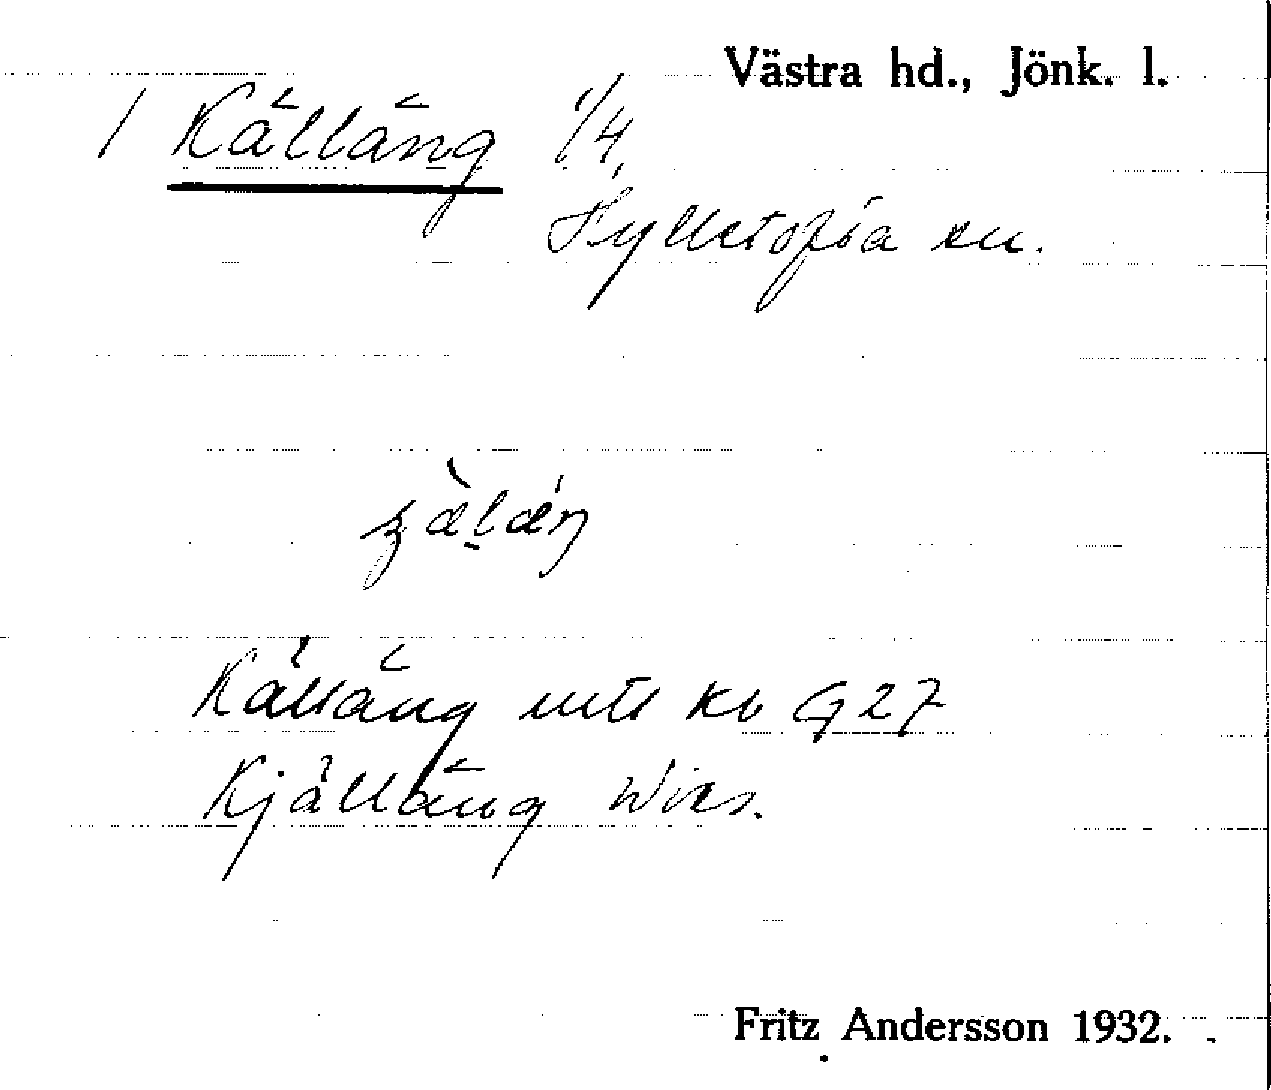 Västra hd., Jönk. l.
1 Källäng 1/4
Hylletofta sn.
Källäng mtl Kb G 27
Kjälläng Wies.
Fritz Andersson 1932.